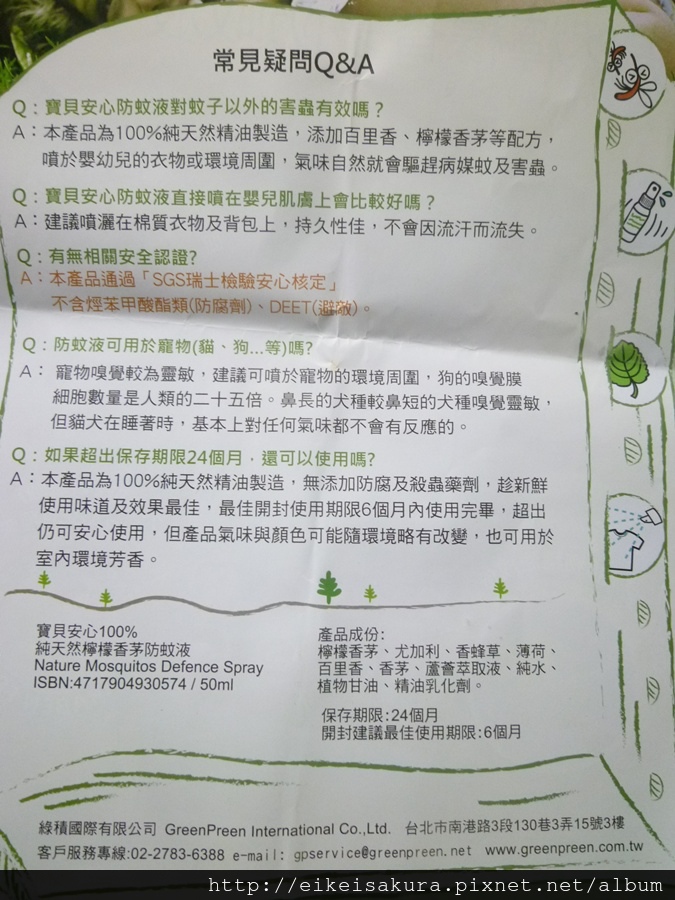 常見疑問Q&A
Q：寶貝安心防蚊液對蚊子以外的害蟲有效嗎？
A：本產品為100%純天然精油製造，添加百里香、檸檬香茅等配方，
噴於嬰幼兒的衣物或環境周圍，氣味自然就會驅趕病媒蚊及害蟲。
Q：寶貝安心防蚊液直接噴在嬰兒肌膚上會比較好嗎？
A：建議噴灑在棉質衣物及背包上，持久性佳，不會因流汗而流失。
Q：有無相關安全認證?
A：本產品通過「SGS瑞士檢驗安心核定」
不含烴苯甲酸酯類(防腐劑)、DEET(避敵)。
Q：防蚊液可用於寵物(貓、狗...等)嗎?
A： 寵物嗅覺較為靈敏，建議可噴於寵物的環境周圍，狗的嗅覺膜
細胞數量是人類的二十五倍。鼻長的犬種較鼻短的犬種嗅覺靈敏，
但貓犬在睡著時，基本上對任何氣味都不會有反應的。
Q：如果超出保存期限24個月，還可以使用嗎?
A：本產品為100%純天然精油製造，無添加防腐及殺蟲藥劑，趁新鮮
使用味道及效果最佳，最佳開封使用期限6個月內使用完畢，超出
仍可安心使用，但產品氣味與顏色可能隨環境略有改變，也可用於
室內環境芳香。
寶貝安心100%
純天然檸檬香茅防蚊液
Nature Mosquitos Defence Spray
ISBN:4717904930574 / 50ml
產品成份:
檸檬香茅、尤加利、香蜂草、薄荷、
百里香、香茅、蘆薈萃取液、純水、
植物甘油、精油乳化劑。
保存期限:24個月
開封建議最佳使用期限:6個月
綠積國際有限公司 GreenPreen International Co.,Ltd. 台北市南港路3段130巷3弄15號3樓
客戶服務專線:02-2783-6388 e-mail: gpservice@greenpreen.net www.greenpreen.com.tw
http://eikeisakura.pixnet.net/album